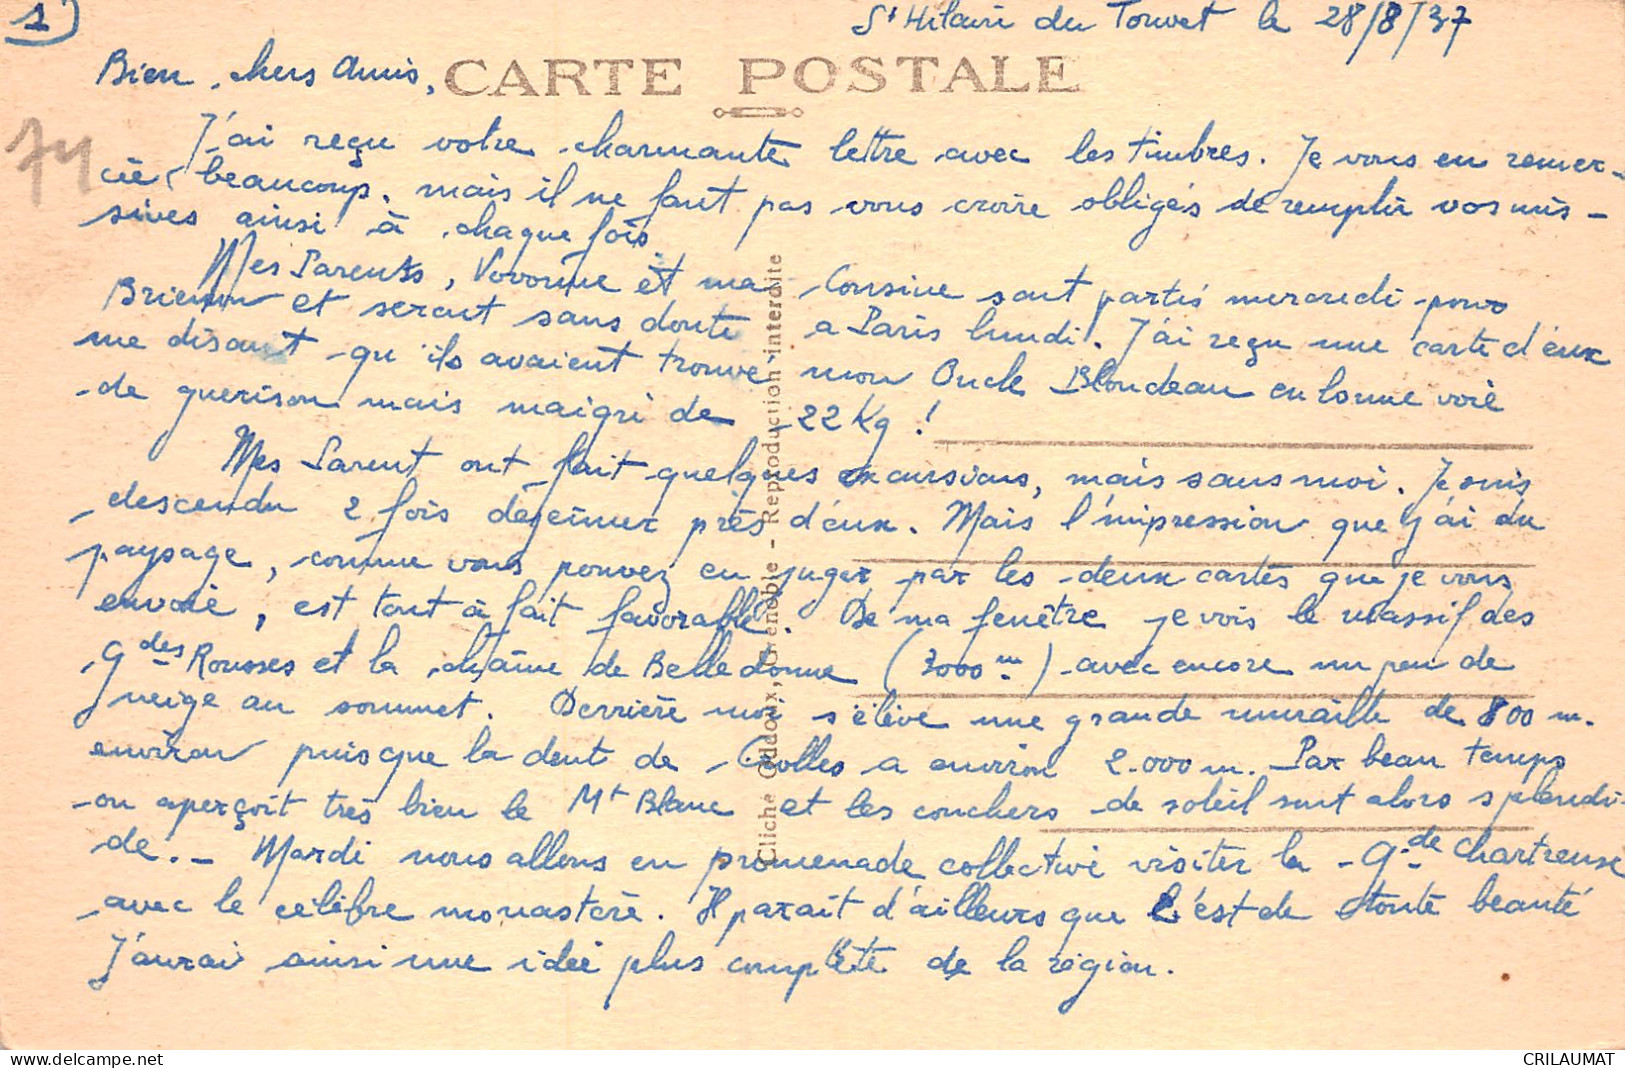 1)
St Hilaire du Touvet le 28/8/37
Bien chers Amis,
CARTE POSTALE
74
J'ai reçu votre charmante lettre avec les timbres. Je vous en remer-
cie beaucoup. mais il ne faut pas vous croire obligés de remplir vos mis-
sives ainsi à chaque fois.
Mes Parents, Vovonne et ma Cousine sont partis mercredi pour
Brienon et seront sans doute a Paris lundi. J'ai reçu une carte d'eux
me disant qu'ils avaient trouvé mon Oncle Blondeau en bonne voie
de guerison mais maigri de 22 Kg !
Mes Parent ont fait quelques excursions, mais sans moi. Je suis
descendu 2 fois dejeûner près d'eux. Mais l'impression que j'ai du
paysage, comme vous pouvez en juger par les deux cartes que je vous
envoie, est tout à fait favorable. De ma fenêtre je vois le massif des
Gdes Rousses et la chaîne de Belledonne (3000 m) avec encore un peu de
neige au sommet. Derrière moi s'élève une grande muraille de 800 m.
environ puisque la dent de Crolles a environ 2.000 m. Par beau temps
on aperçoit très bien le Mt Blanc et les couchers de soleil sont alors splendi-
de. - Mardi nous allons en promenade collective visiter la Gde Chartreuse
avec le célèbre monastère. Il parait d'ailleurs que c'est de toute beauté
J'aurai ainsi une idée plus complète de la région.
Cliché Oddoux, Grenoble - Reproduction interdite
delcampe.net
CRILAUMAT